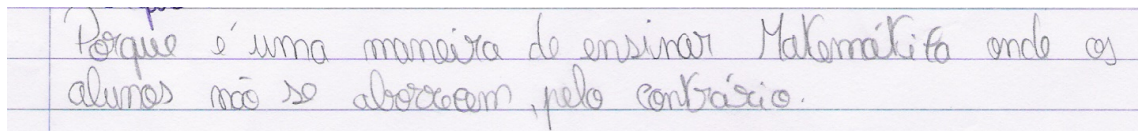 Porque é uma maneira de ensinar Matemática onde os
alunos não se aborrecem, pelo contrário.